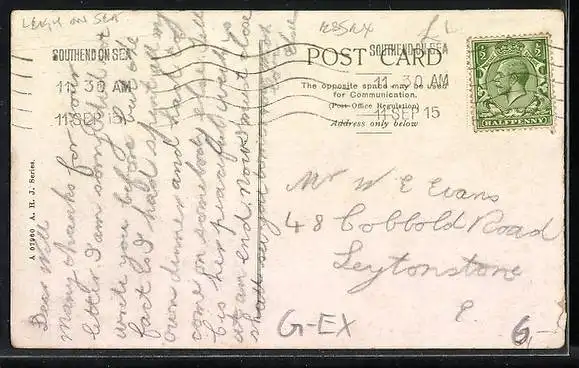 LEIGH ON SEA
ESSEX
SOUTHEND ON SEA
11 30 AM
11 SEP 15
SOUTHEND ON SEA
11 30 AM
11 SEP 15
POST CARD
The opposite space may be used
for Communication.
(Post Office Regulation)
Address only below
HALFPENNY
A 07960 A. H. J. Series.
Dear Will
many thanks for your
letter. I am sorry I did not
write you before but the
fact is I had
own dinner and half
come on somebody else
bye her peaceful week is
at an end. Now I must close
Mr W E Evans
48 Cobbold Road
Leytonstone
E.
G-EX
6-